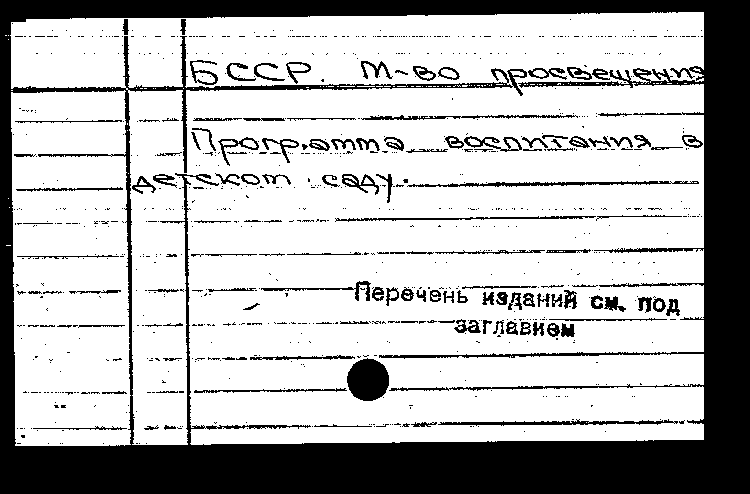 БССР. М-во просвещения
Программа воспитания в
детском саду.
Перечень изданий см. под
заглавием